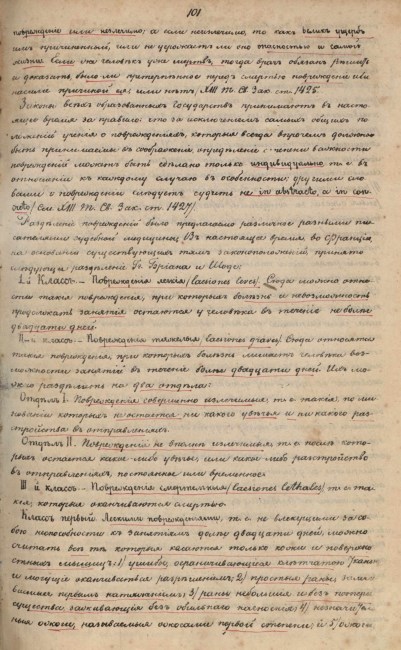 101
повреждено или неизлечимо, а если неизлечимо, то какъ великъ ущербъ
имъ причиненный, или не угрожаетъ ли оно опасностью и самой
жизни. Если же человѣкъ уже мертвъ, тогда врачъ обязанъ рѣшить
и доказать было ли претерпѣнное предъ смертью поврежденіе или
насиліе причиной ея или нѣтъ. XIII т. Св. Зак. ст. 1425.
Законы всѣхъ образованныхъ Государствъ принимаютъ въ насто-
ящую время за правило: что за исключеніемъ самыхъ общихъ по-
ложеній ученія о поврежденіяхъ, которыя всегда впрочемъ должно
быть принимаемы въ соображеніе, опредѣленіе степени важности
поврежденій можетъ быть сдѣлано только индивидуально т. е. въ
отношеніи къ каждому случаю въ особенности: другими сло-
вами о поврежденіи слѣдуетъ судить не in abstracto, а in con-
creto/ См. XIII т. Св. Зак. ст. 1427/
Раздѣленій поврежденій было предлагаемо различное разными пи-
сателями судебной медицины. Въ настоящее время во Франціи
на основаніи существующихъ тамъ законоположеній принято
слѣдующее раздѣленіе Гг. Бріана и Шоде:
I-й Классъ. – Поврежденія легкія/ laesiones leves/. Сюда можно отне-
сти такія поврежденія, при которыхъ болѣзнь и невозможность
продолжать занятія остаются у человѣка въ теченіе не болѣе
двадцати дней.
II-й классъ. – Поврежденія тяжелыя/ laesiones graves/. Сюда относятся
такія поврежденія при которыхъ болѣзнь лишаетъ человѣка воз-
можности занятій въ теченіе болѣе двадцати дней. Ихъ мо-
жно раздѣлить на два отдѣла:
Отдѣлъ I. Поврежденія совершенно излечимыя: т. е. такія по ми-
нованіи которыхъ не остается ни какого увѣчья и ни какого раз-
стройства въ отправленіяхъ.
Отдѣлъ II. Поврежденія не вполнѣ излечимыя, т. е. послѣ кото-
рыхъ остается какое либо увѣчье или какое либо разстройство
въ отправленіяхъ, постоянное или временное.
III-й классъ. – Поврежденія смертельныя/ laesiones lethales/, т. е. та-
кія, которыя оканчиваются смертью.
Классъ первый Легкими поврежденіями, т. е. не влекущими за со-
бою неспособности къ занятіямъ долѣе двадцати дней, можно
считать всѣ тѣ которыя касаются только кожи и поверхно-
стныхъ мышицъ: 1) ушибы, ограничивающіеся
и могущіе оканчиваться разрѣшеніемъ; 2) простыя раны, зажи-
вшія первымъ натяженіемъ; 3) раны небольшія и безъ потери
существа, заживающія безъ обильнаго нагноенія; 4) незначитель-
ныя ожоги, называемыя ожогами первой степени; и 5) ожоги